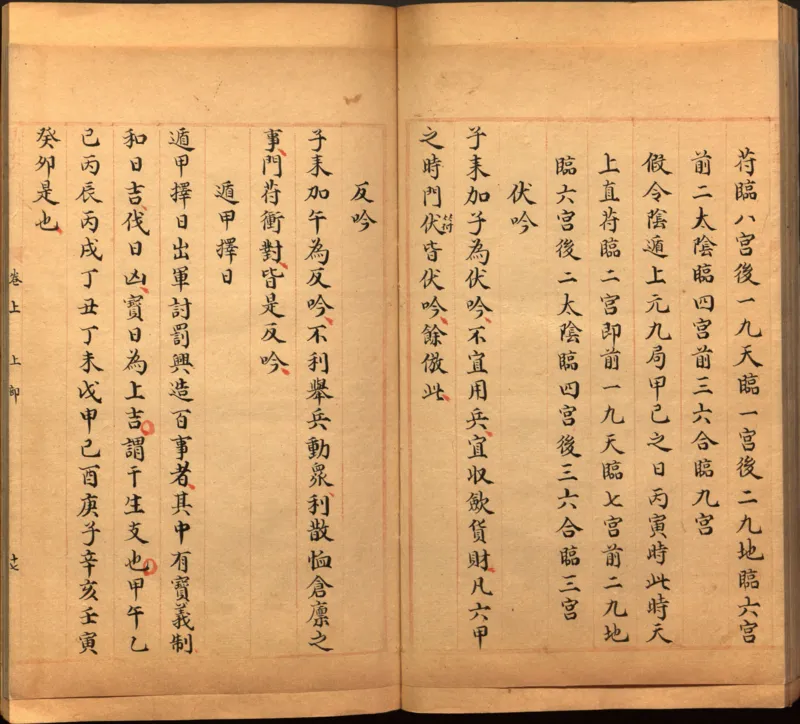 苻臨八宮後一九天臨一宮後二九地臨六宮
前二太陰臨四宮前三六合臨九宮
假令陰遁上元九局甲己之日丙寅時此時天
上直苻臨二宮即前一九天臨七宮前二九地
臨六宮後二太陰臨四宮後三六合臨三宮
伏吟
子来加子為伏吟、不宜用兵、宜収歛貨財、凡六甲
之時門伏符皆伏吟、餘倣此、
反吟
子来加午為反吟、不利舉兵動衆、利散恤倉廪之
事、門苻衝對、皆是反吟、
遁甲擇日
遁甲擇日出軍討罰興造百事者、其中有寶義制
和日吉、伐日凶、寶日為上吉。謂干生支也。甲午乙
巳丙辰丙戌丁丑丁未戊申己酉庚子辛亥壬寅
癸卯是也、
卷上 上 十七